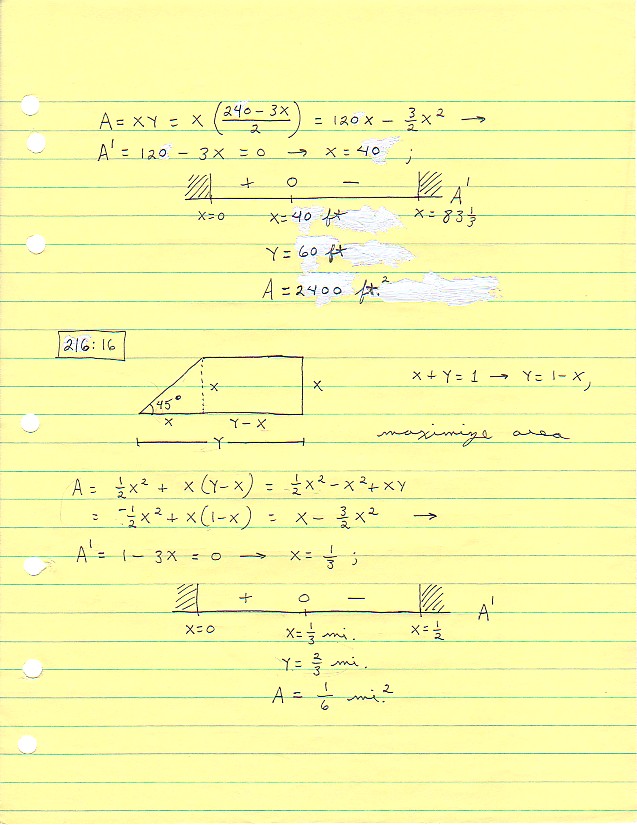 A = XY = X (240 - 3X / 2) = 120X - 3/2 X² →
A' = 120 - 3X = 0 → X = 40 ;
+ 0 - A'
X=0 X=40 ft X = 83 1/3
Y = 60 ft
A = 2400 ft.²
216: 16
X + Y = 1 → Y = 1 - X,
45° X X
X Y - X
Y
maximize area
A = 1/2 X² + X(Y-X) = 1/2 X² - X² + XY
= -1/2 X² + X(1-X) = X - 3/2 X² →
A' = 1 - 3X = 0 → X = 1/3 ;
+ 0 - A'
X=0 X= 1/3 mi. X = 1/2
Y = 2/3 mi.
A = 1/6 mi.²